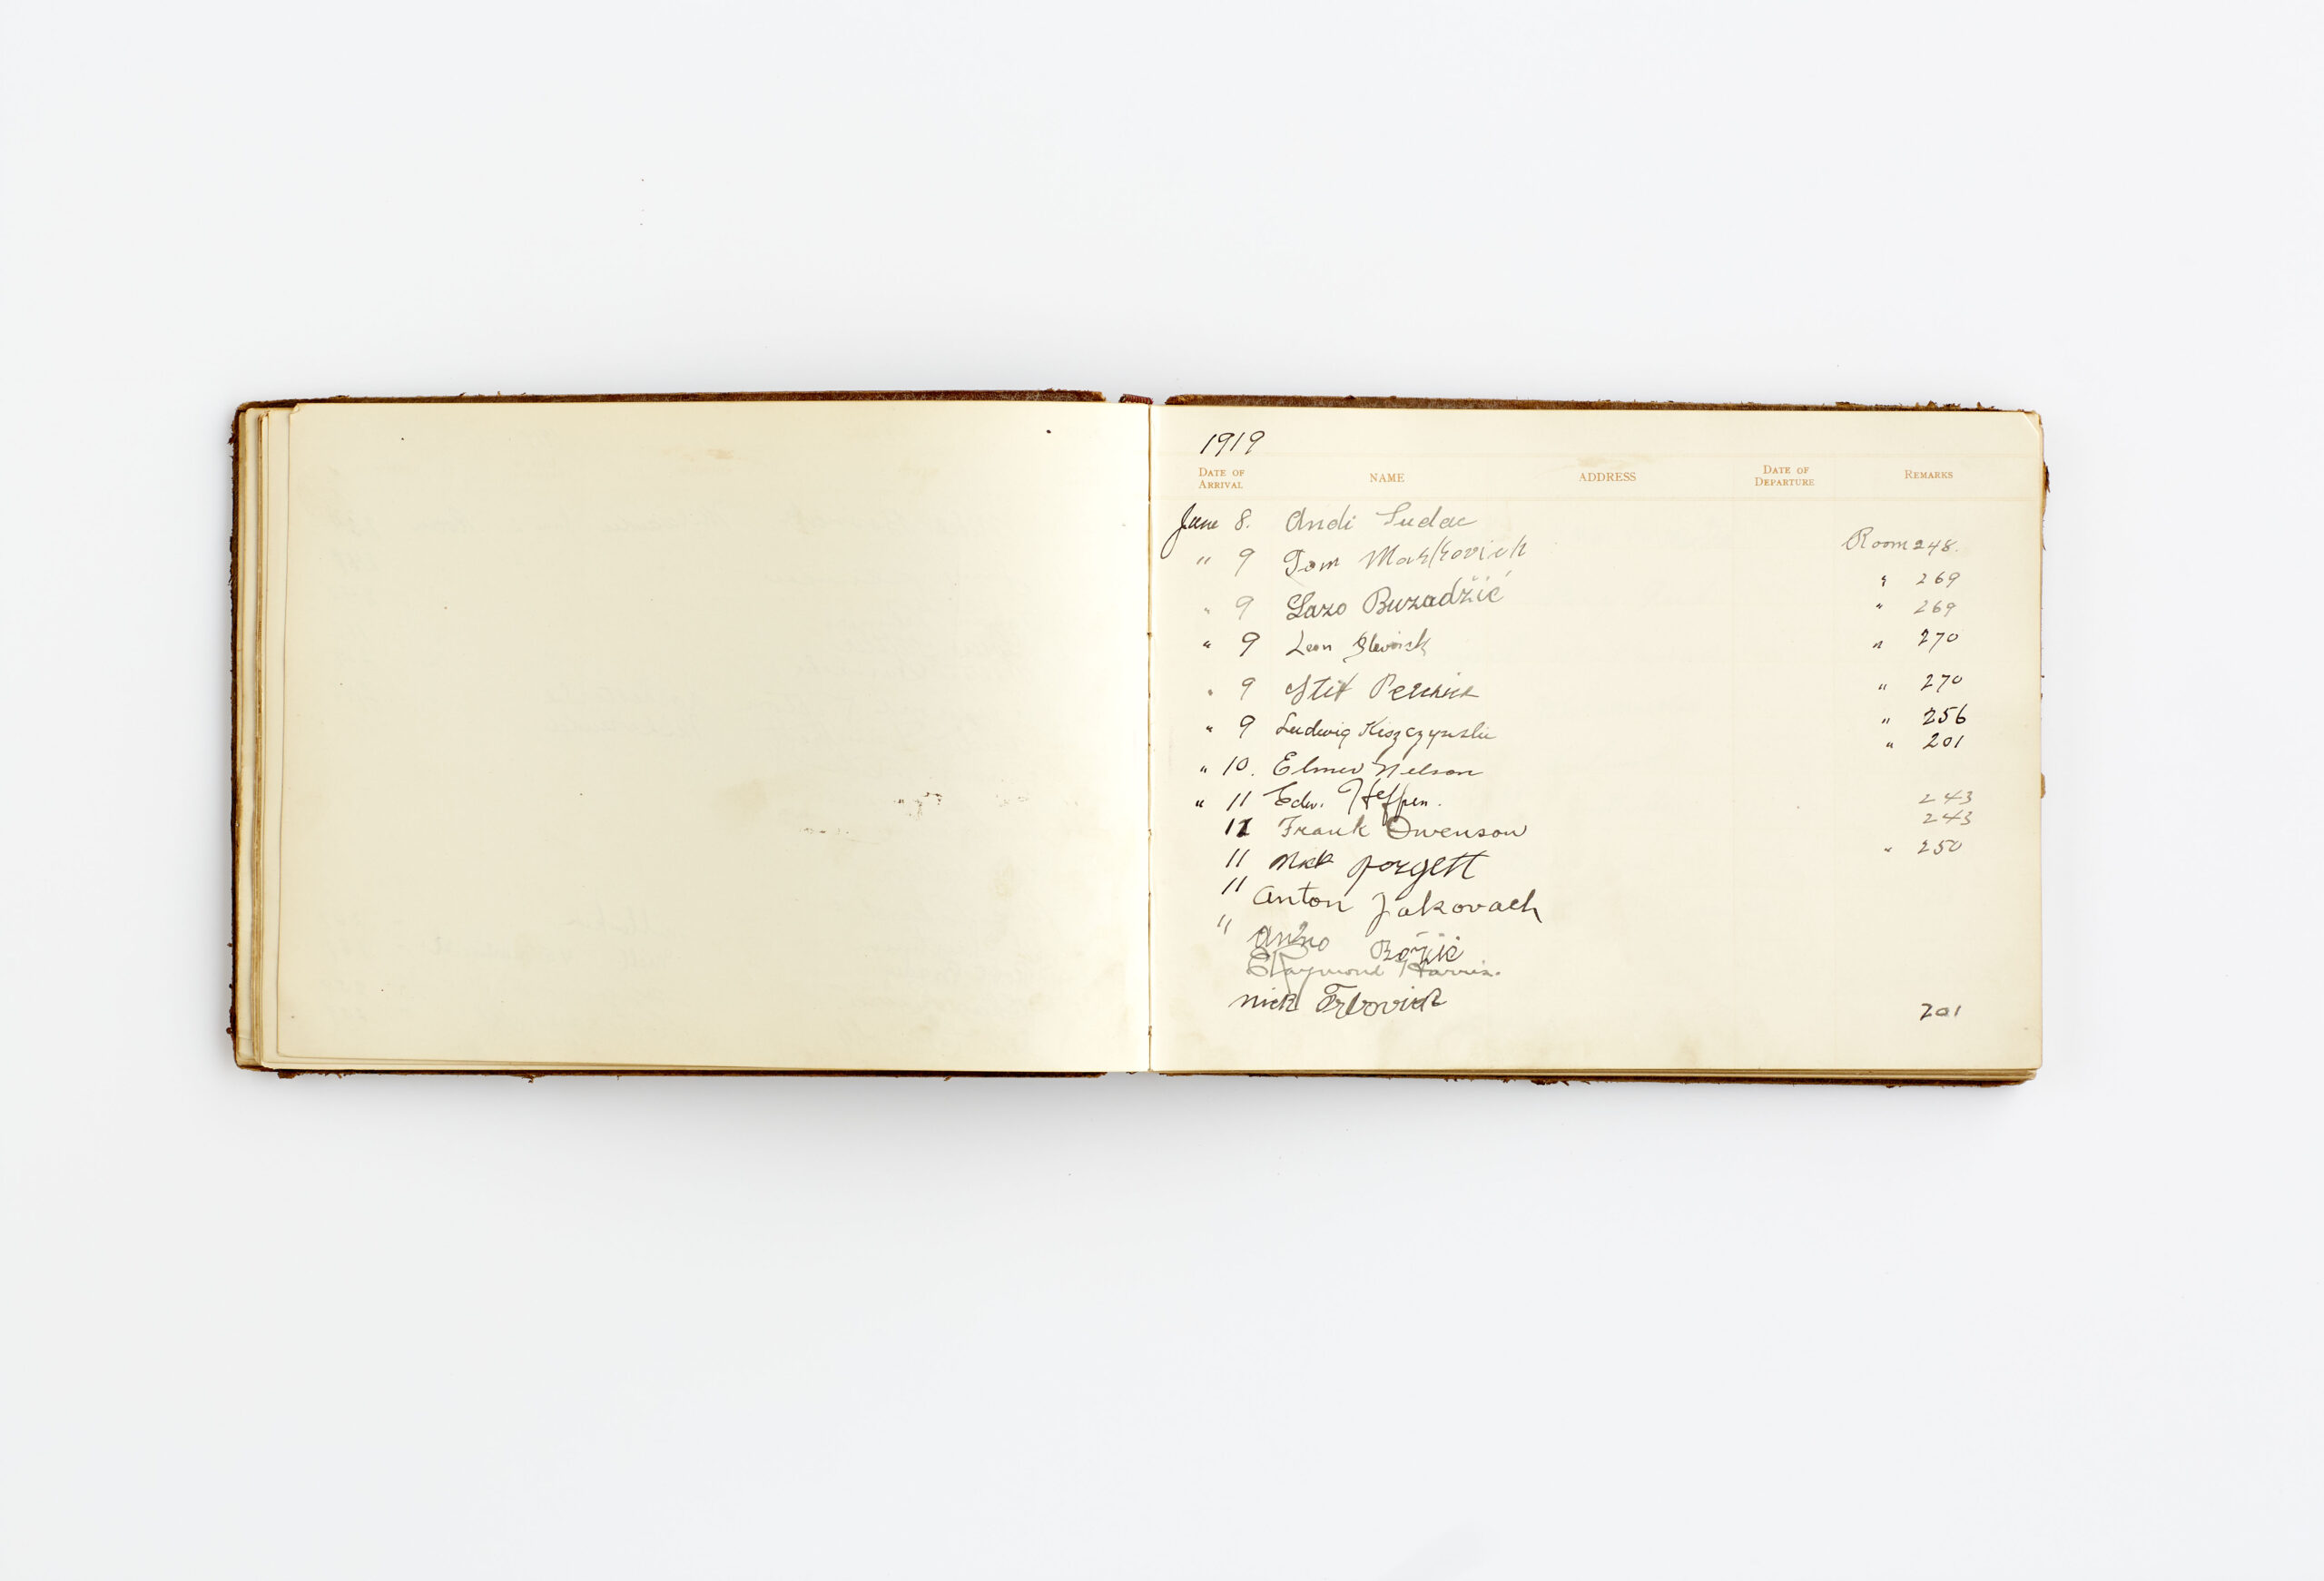 1919
DATE OF ARRIVAL NAME ADDRESS DATE OF DEPARTURE REMARKS
June 8. Andi Sudac Room 248.
" 9 Tom Markovich " 269
" 9 Lazo Buzadžić " 269
" 9 Leon " 270
" 9 Stif " 270
" 9 Ludwig Kiszczynslii " 256
" 10. Elmer Nelson " 201
" 11 Edw. Heffen. 243
11 Frank Swenson 243
11 Nick forgett " 250
11 Anton Jakovach
11 Božić
Raymond Harris.
Nick Trbovich 201